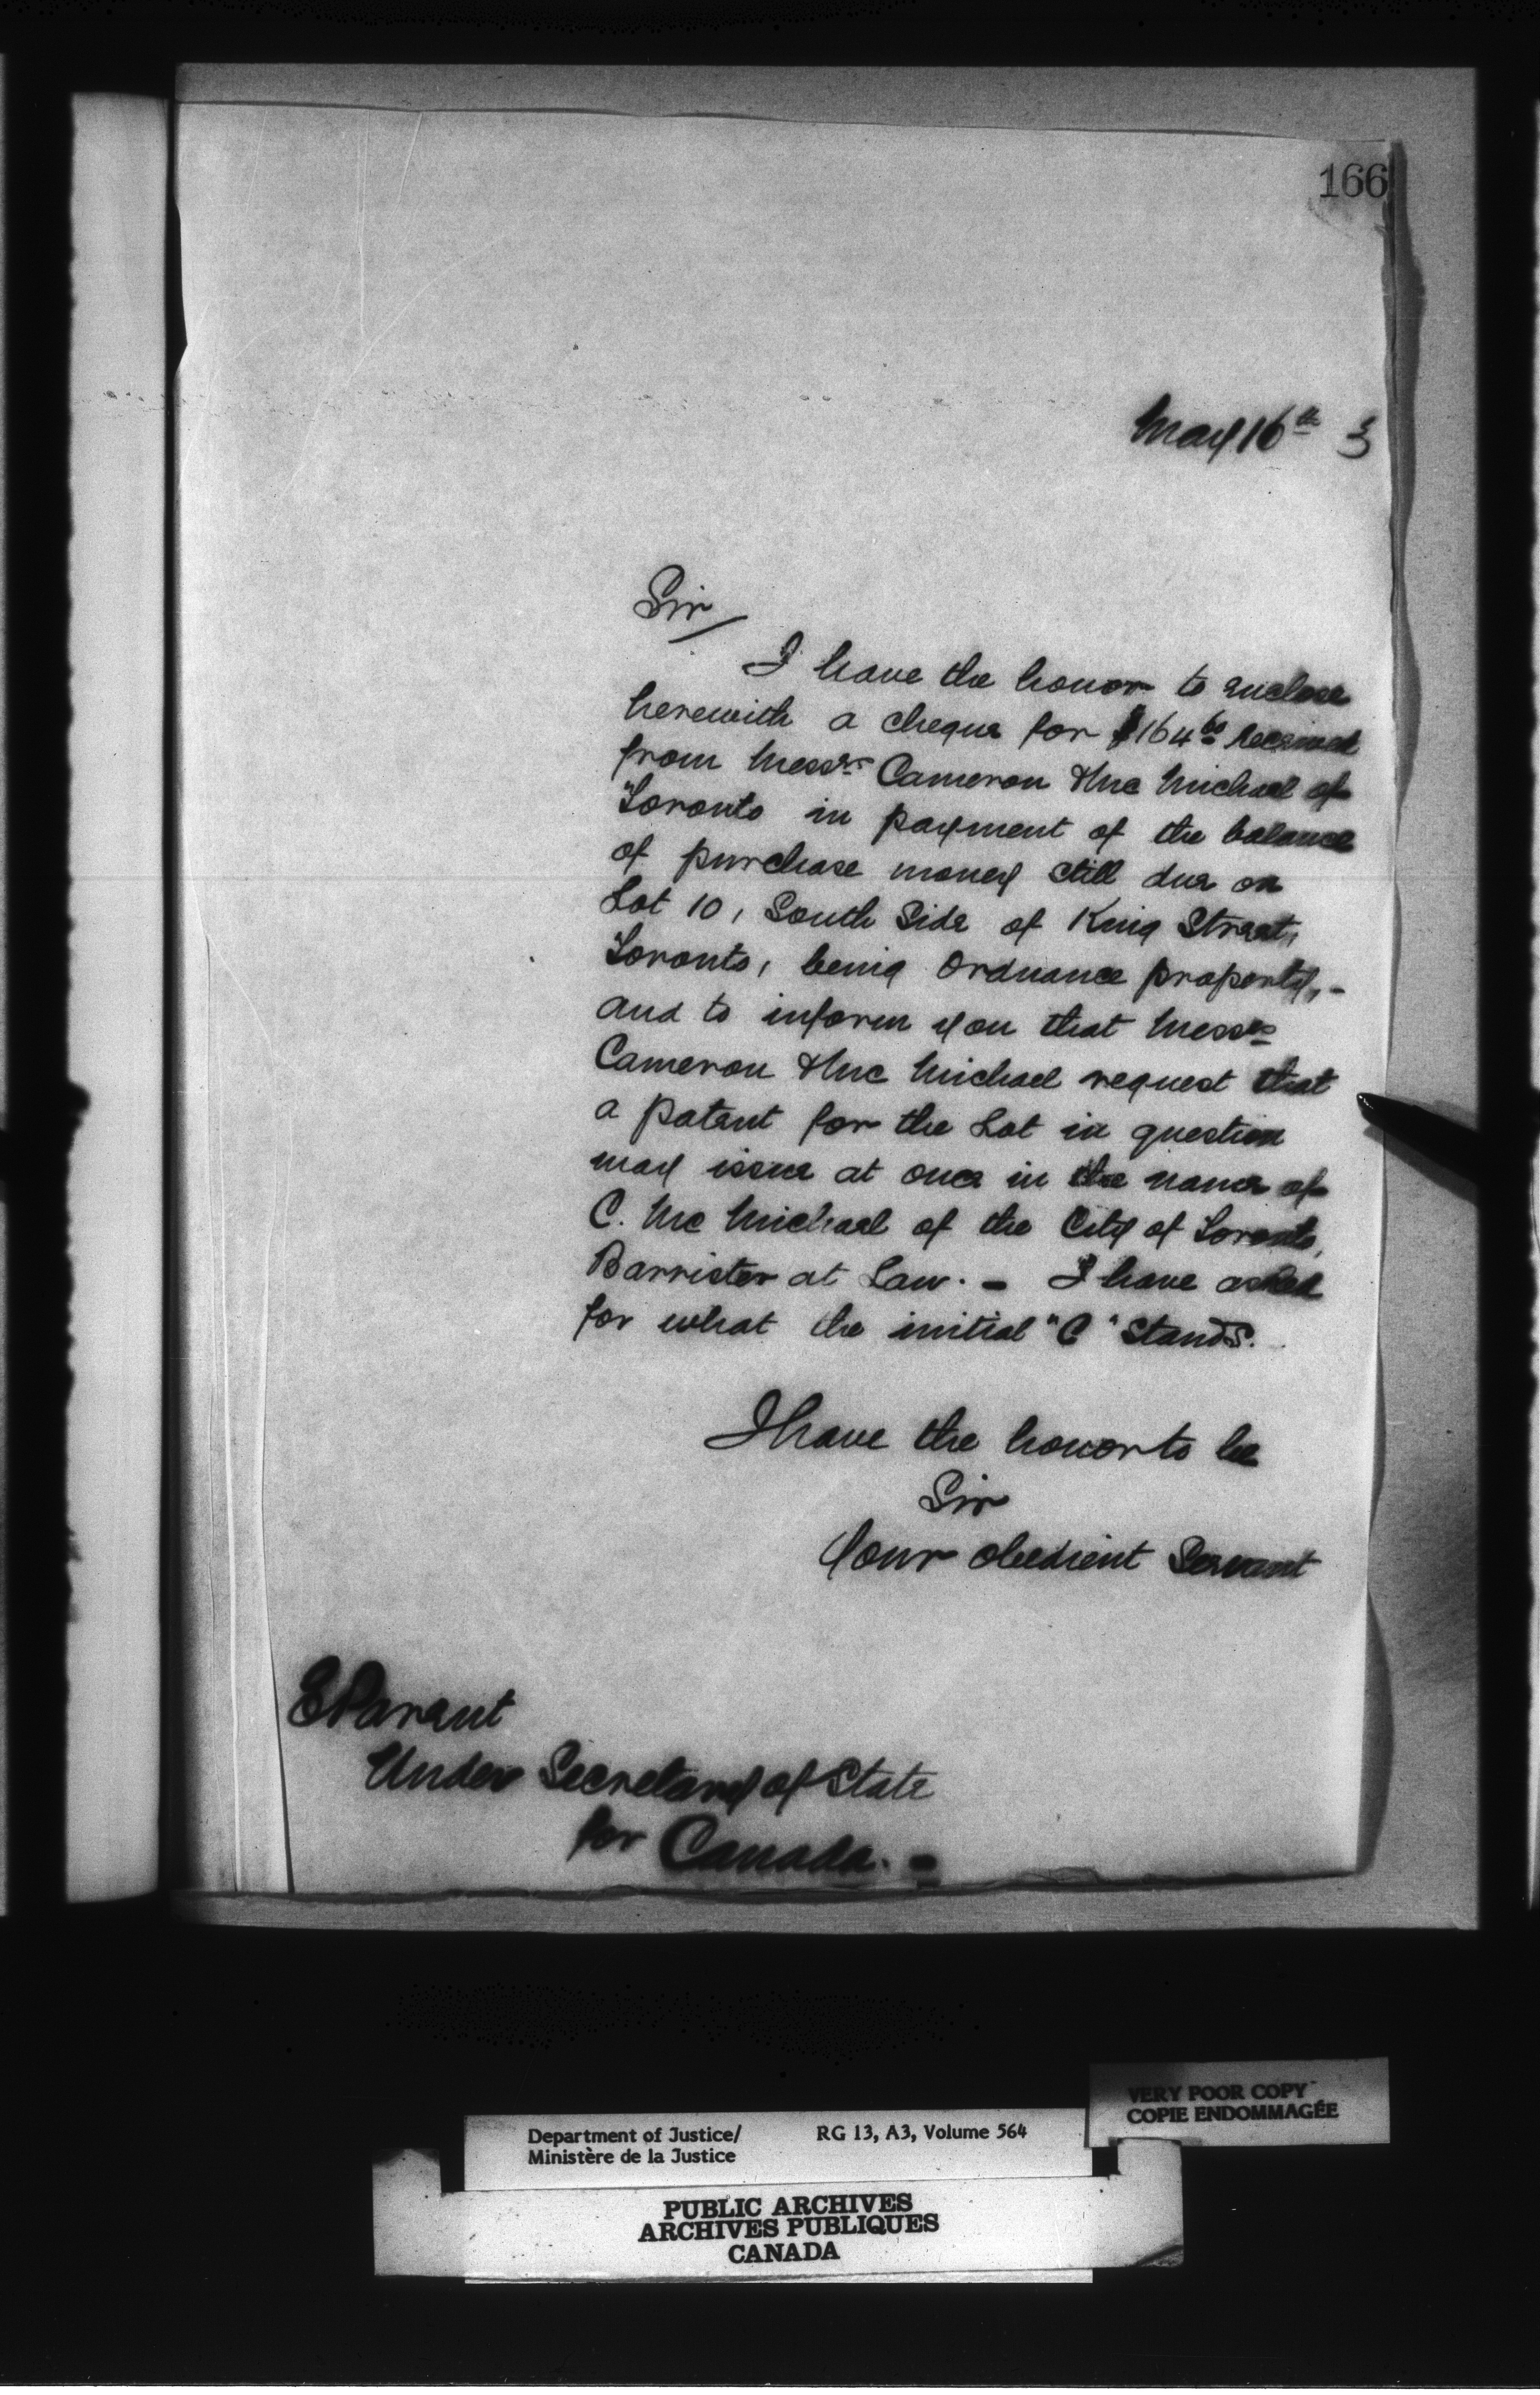 166
May 16th 3
Sir
I have the honor to enclose
herewith a cheque for $164 60 received
from Messrs Cameron & Mc Michael of
Toronto in payment of the balance
of purchase money still due on
Lot 10, South Side of King Street,
Toronto, being Ordnance property, -
and to inform you that Messrs
Cameron & Mc Michael request that
a patent for the Lot in question
may issue at once in the name of
C. Mc Michael of the City of Toronto,
Barrister at Law. - I have asked
for what the initial "C" stands.
I have the honor to be
Sir
Your obedient Servant
E Parent
Under Secretary of State
for Canada. -
VERY POOR COPY
COPIE ENDOMMAGÉE
Department of Justice/ RG 13, A3, Volume 564
Ministère de la Justice
PUBLIC ARCHIVES
ARCHIVES PUBLIQUES
CANADA